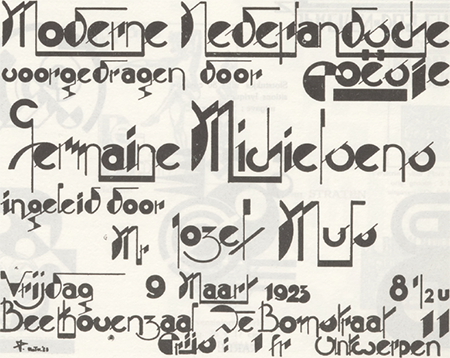 Moderne Nederlandsche
voorgedragen door Poësie
Germaine Michielsens
ingeleid door
Mr Jozef Muls
Vrijdag 9 Maart 1923 8 1/2 u
Beethovenzaal De Bomstraat 11
Prijs: 1 fr Antwerpen